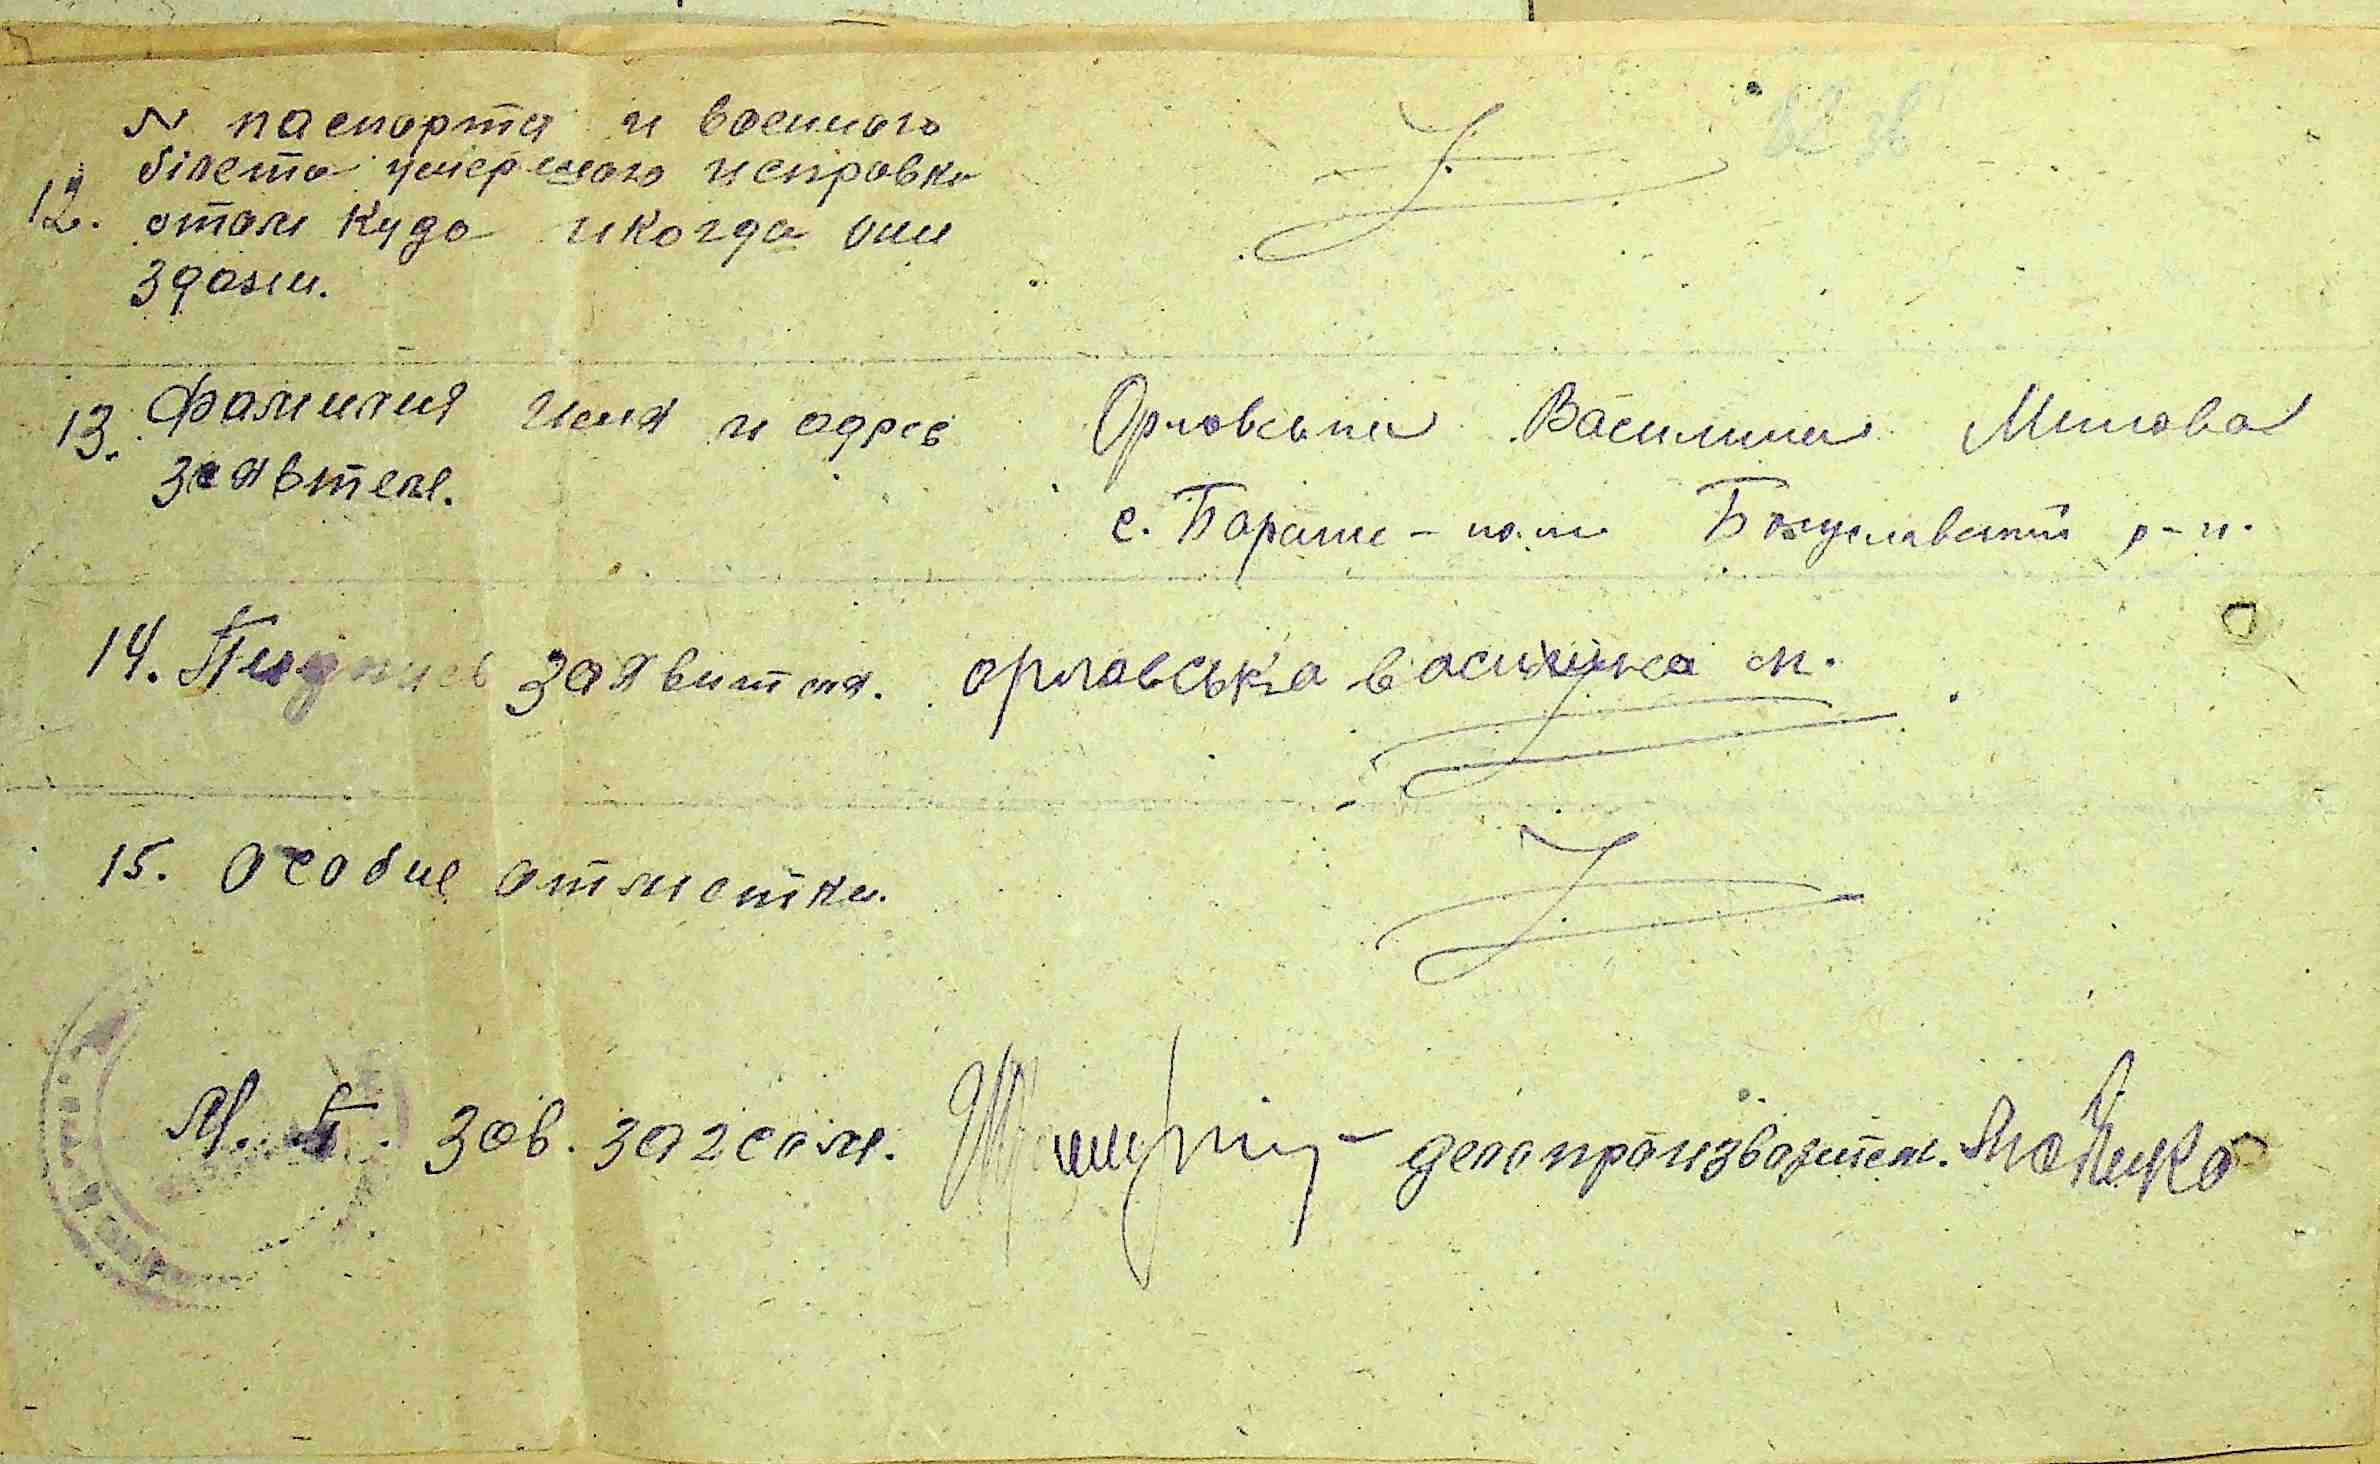 N паспорта и военного
білета умершого исправка
12. отом куда и когда они
здани.
13. Фамилия Имя и адрес Орловська Василина
заявтеля. с. Богуславський р-н.
14. Подпись заявителя. орловська василина м.
15. Особие отметки.
М. П. Зав. загсом. делопроизводител.